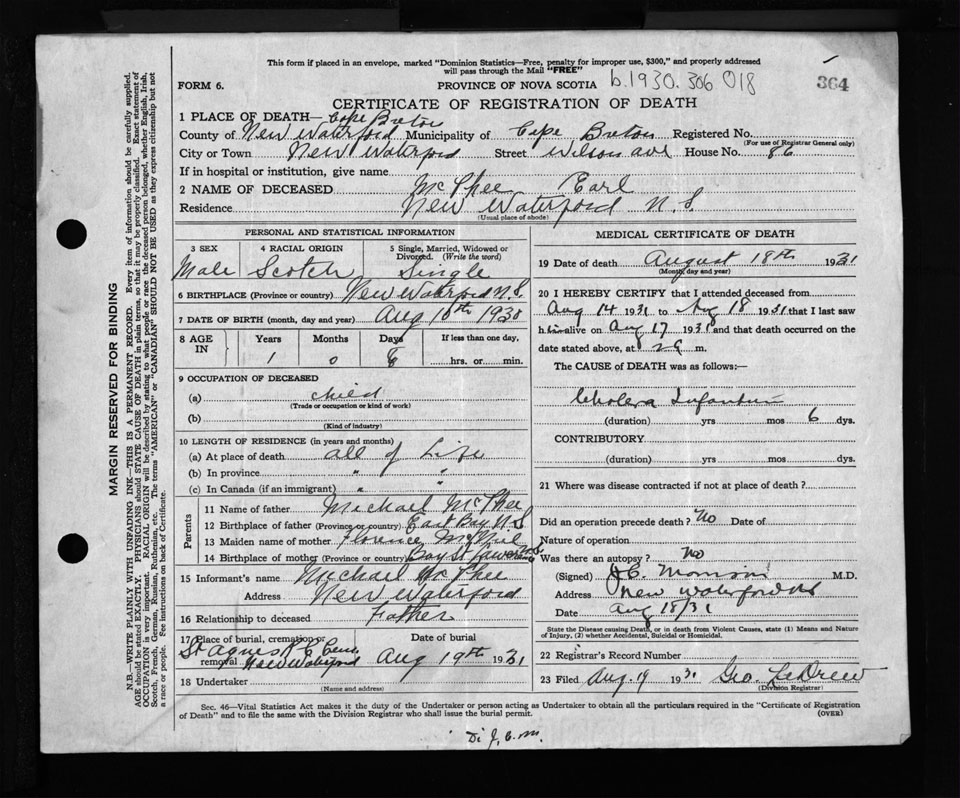 This form if placed in an envelope, marked "Dominion Statistics—Free, penalty for improper use, $300," and properly addressed
will pass through the Mail "FREE"
FORM 6.
PROVINCE OF NOVA SCOTIA
b.1930. 306 018
364
CERTIFICATE OF REGISTRATION OF DEATH
1 PLACE OF DEATH— Cape Breton
County of New Waterford Municipality of Cape Breton Registered No.
(For use of Registrar General only)
City or Town New Waterford Street Wilson ave House No. 86
If in hospital or institution, give name
2 NAME OF DECEASED McPhee Earl
Residence New Waterford N.S.
(Usual place of abode)
PERSONAL AND STATISTICAL INFORMATION
3 SEX
Male
4 RACIAL ORIGIN
Scotch
5 Single, Married, Widowed or
Divorced. (Write the word)
Single
6 BIRTHPLACE (Province or country) New Waterford N.S.
7 DATE OF BIRTH (month, day and year) Aug 10th 1930
8 AGE
IN
Years Months Days If less than one day,
1 0 hrs. or min.
9 OCCUPATION OF DECEASED
(a) child
(Trade or occupation or kind of work)
(b)
(Kind of industry)
10 LENGTH OF RESIDENCE (in years and months)
(a) At place of death all of Life
(b) In province " "
(c) In Canada (if an immigrant) " "
Parents
11 Name of father Michael McPhee
12 Birthplace of father (Province or country) East Bay N.S
13 Maiden name of mother Florence McNeil
14 Birthplace of mother (Province or country) Bay St Lawrence
15 Informant's name Michael McPhee
Address New Waterford
16 Relationship to deceased Father
17 Place of burial, cremation or
removal St Agnes R C Cem. New Waterford
Date of burial
Aug 19th 1931
18 Undertaker
(Name and address)
MEDICAL CERTIFICATE OF DEATH
19 Date of death August 18th 1931
(Month, day and year)
20 I HEREBY CERTIFY that I attended deceased from
Aug 14 1931 to Aug 18 1931 that I last saw
him alive on Aug 17 1931 and that death occurred on the
date stated above, at m.
The CAUSE of DEATH was as follows:—
Cholera Infantum
(duration) yrs mos 6 dys.
CONTRIBUTORY
(duration) yrs mos dys.
21 Where was disease contracted if not at place of death?
Did an operation precede death? No Date of
Nature of operation
Was there an autopsy? No
(Signed) M.D.
Address New Waterford NS
Date Aug 18/31
State the Disease causing Death, or in death from Violent Causes, state (1) Means and Nature
of Injury, (2) whether Accidental, Suicidal or Homicidal.
22 Registrar's Record Number
23 Filed Aug. 19 1931 Geo. LeDrew
(Division Registrar)
Sec. 46—Vital Statistics Act makes it the duty of the Undertaker or person acting as Undertaker to obtain all the particulars required in the "Certificate of Registration
of Death" and to file the same with the Division Registrar who shall issue the burial permit.
(OVER)
MARGIN RESERVED FOR BINDING
N.B.—WRITE PLAINLY WITH UNFADING INK—THIS IS A PERMANENT RECORD. Every item of information should be carefully supplied.
AGE should be stated EXACTLY. PHYSICIANS should STATE CAUSE OF DEATH in plain terms, so that it may be properly classified. Exact statement of
OCCUPATION is very important. RACIAL ORIGIN will be described by stating to what people or race the deceased person belonged, whether English, Irish,
Scotch, French, German, Russian, Ruthenian, etc. The terms "AMERICAN" or "CANADIAN" SHOULD NOT BE USED as they express citizenship but not
a race or people. See instructions on back of Certificate.